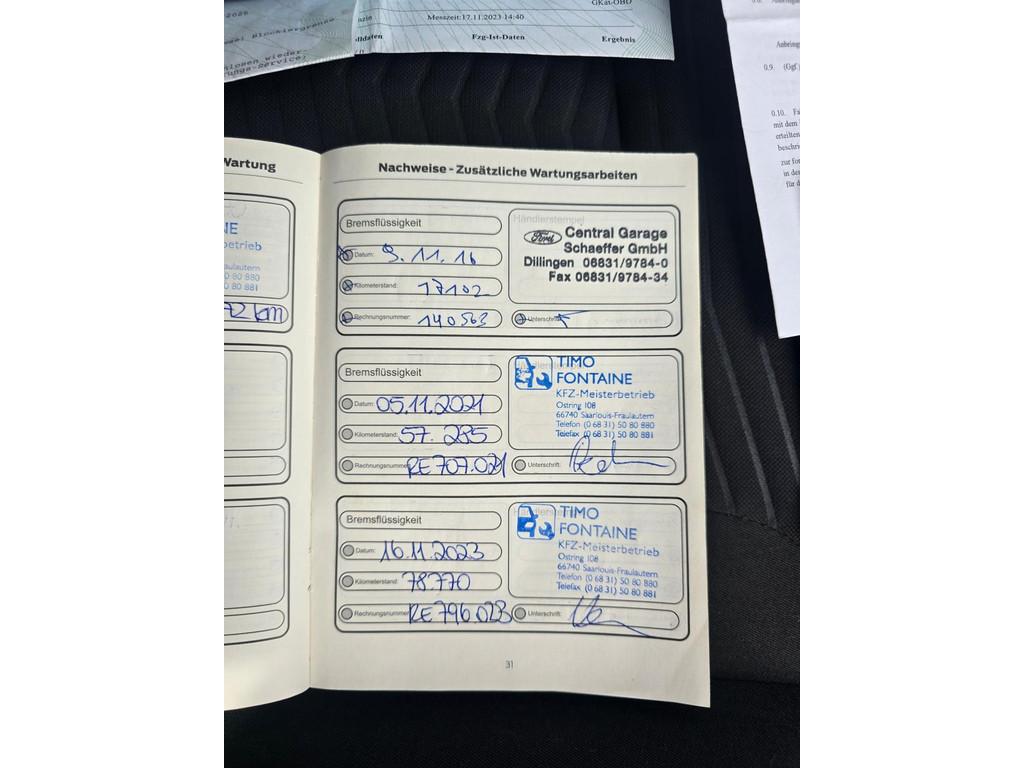 2026
GKat-OBD
nzin
Messzeit:17.11.2023 14:40
lldaten
Fzg-Ist-Daten
Ergebnis
0.9. (Ggf.
0.10.
mit dem
erteilten
zur
in de
für d
Wartung
Nachweise - Zusätzliche Wartungsarbeiten
Bremsflüssigkeit
Händlerstempel
Ford Central Garage
Schaeffer GmbH
Dillingen 06831/9784-0
Fax 06831/9784-34
Datum: 9.11.16
Kilometerstand: 17102
Rechnungsnummer: 140563
Unterschrift:
Bremsflüssigkeit
TIMO
FONTAINE
KFZ-Meisterbetrieb
Ostring 108
66740 Saarlouis-Fraulautern
Telefon (0 68 31) 50 80 880
Telefax (0 68 31) 50 80 881
Datum: 05.11.2021
Kilometerstand: 57.285
Rechnungsnummer RE 707.021
Unterschrift:
Bremsflüssigkeit
TIMO
FONTAINE
KFZ-Meisterbetrieb
Ostring 108
66740 Saarlouis-Fraulautern
Telefon (0 68 31) 50 80 880
Telefax (0 68 31) 50 80 881
Datum: 16.11.2023
Kilometerstand: 78.770
Rechnungsnummer RE 796.023
Unterschrift:
31
NE
betrieb
raulautern
0 80 880
0 80 881
72 km